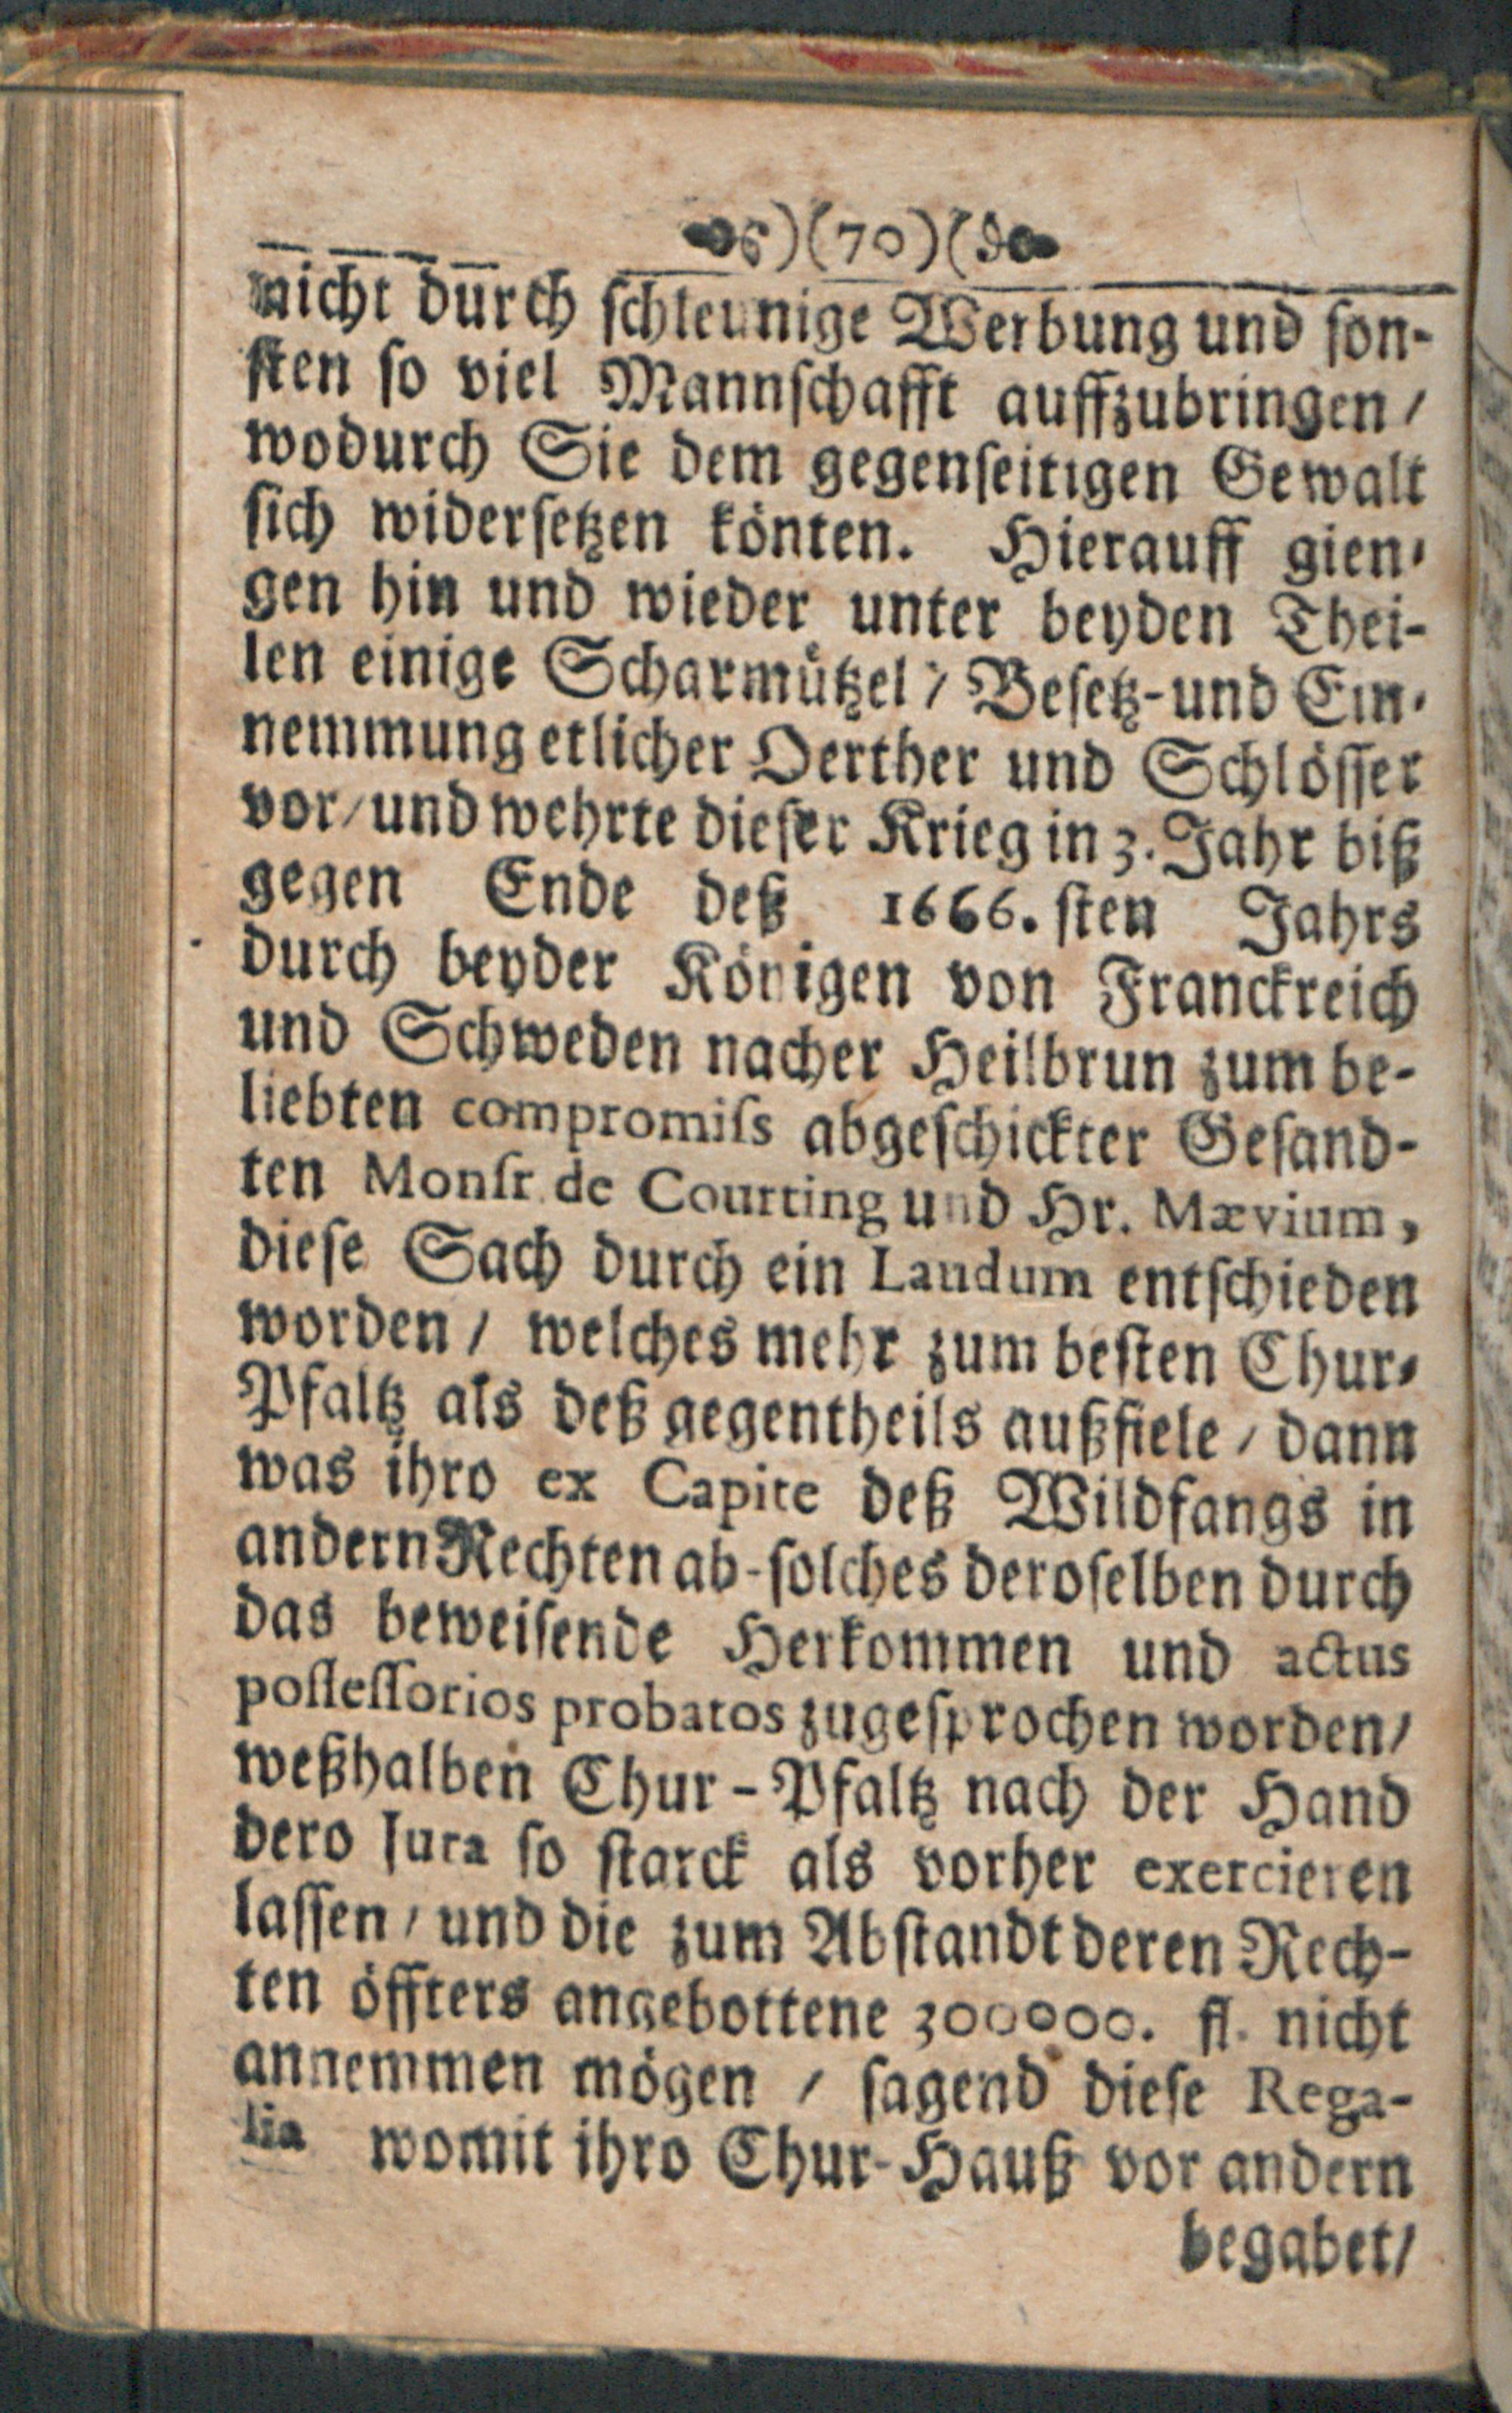 )(70)(
nicht durch schleunige Werbung und son-
sten so viel Mannschafft auffzubringen /
wodurch Sie dem gegenseitigen Gewalt
sich widersetzen könten. Hierauff gien-
gen hin und wieder unter beyden Thei-
len einige Scharmützel / Besetz-und Ein-
nemmung etlicher Oerther und Schlösser
vor / und wehrte dieser Krieg in 3. Jahr biß
gegen Ende deß 1666. sten Jahrs
durch beyder Königen von Franckreich
und Schweden nacher Heilbrun zum be-
liebten compromiss abgeschickter Gesand-
ten Monsr. de Courting und Hr. Mævium,
diese Sach durch ein Laudum entschieden
worden / welches mehr zum besten Chur-
Pfaltz als deß gegentheils außfiele / dann
was ihro ex Capite deß Wildfangs in
andern Rechten ab-solches deroselben durch
das beweisende Herkommen und actus
possessorios probatos zugesprochen worden /
weßhalben Chur-Pfaltz nach der Hand
dero Jura so starck als vorher exercieren
lassen / und die zum Abstandt deren Rech-
ten öffters angebottene 300000. fl. nicht
annemmen mögen / sagend diese Rega-
lia womit ihro Chur-Hauß vor andern
begabet /